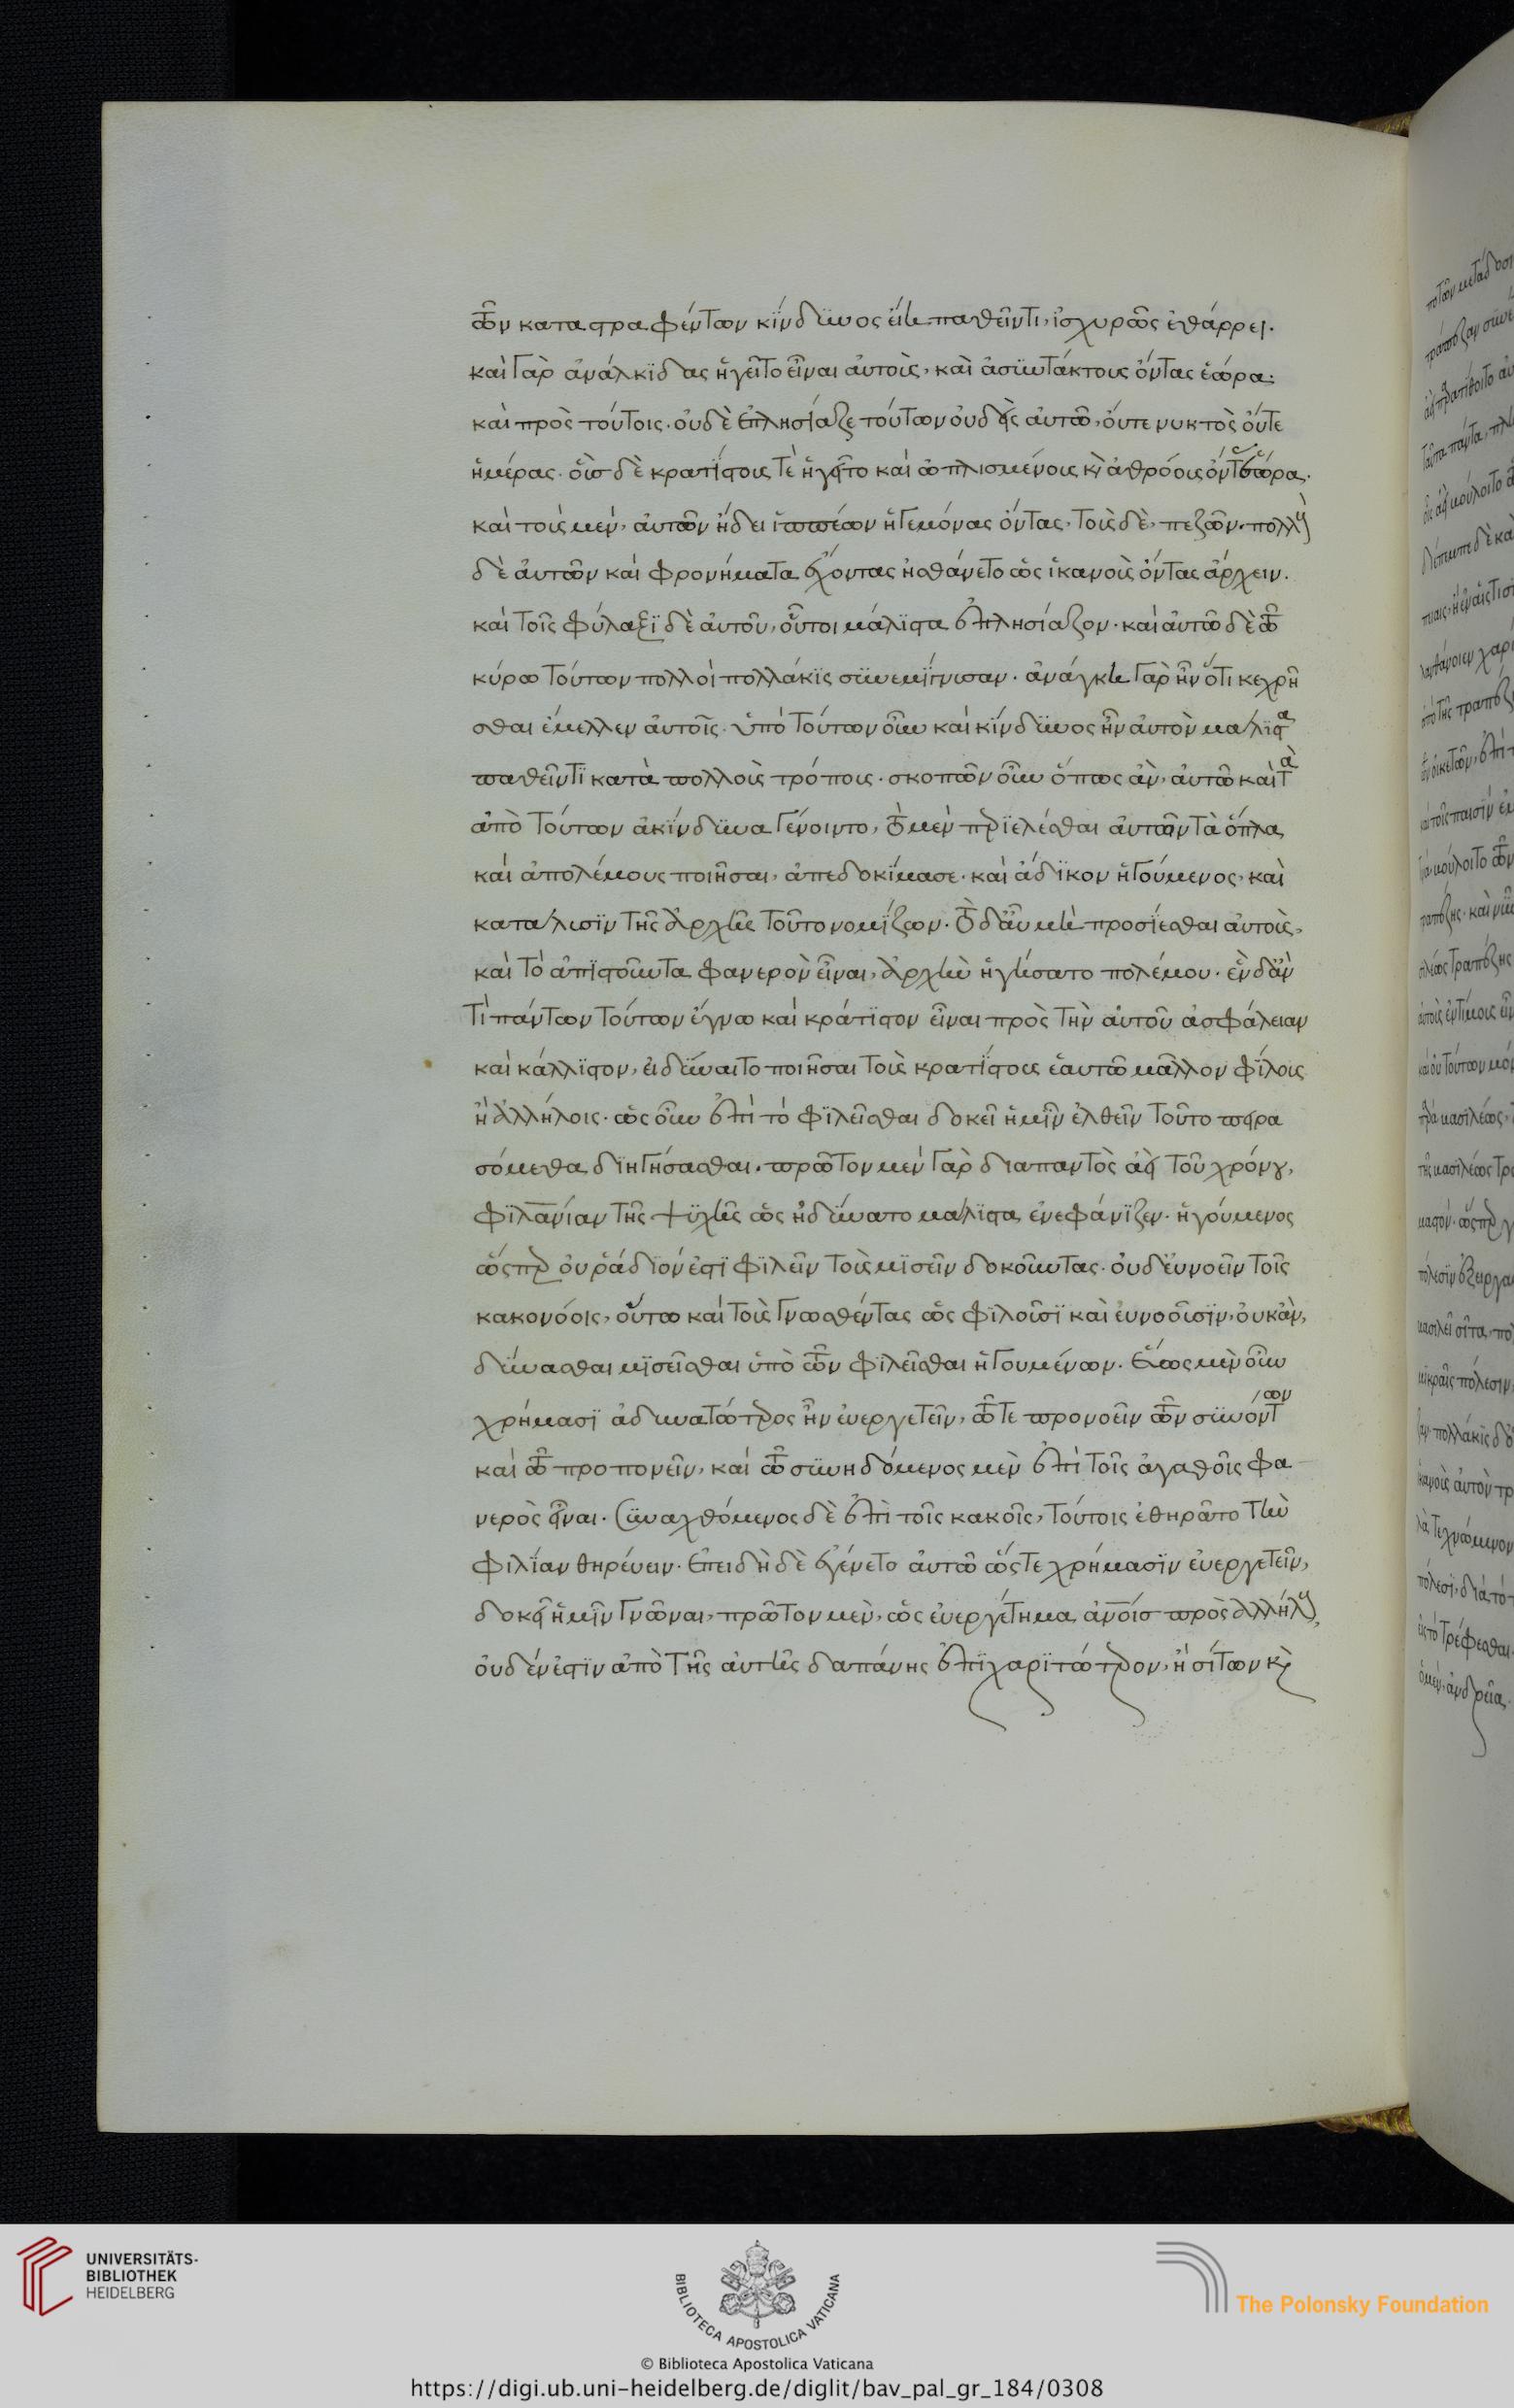 τῶν καταστραφέντων κίνδυνος εἴη παθεῖν τι, ἰσχυρῶς ἐθάρρει.
καὶ γὰρ ἀνάλκιδας ἡγεῖτο εἶναι αὐτοὺς, καὶ ἀσυντάκτους ὄντας ἑώρα:
καὶ πρὸς τούτοις. οὐδὲ ἐπλησίαζε τούτων οὐδεὶς αὐτῶ, οὔτε νυκτὸς οὔτε
ἡμέρας. οὓς δὲ κρατίστους τὲ ἡγεῖτο καὶ ὡπλισμένους κὶ ἀθρόους ὄντας ἑώρα.
καὶ τοὺς μὲν, αὐτῶν ἤδει ἱππέων ἡγεμόνας ὄντας, τοὺς δὲ, πεζῶν. πολλοὺς
δὲ αὐτῶν καὶ φρονήματα ἔχοντας ἠσθάνετο ὡς ἱκανοὺς ὄντας ἄρχειν.
καὶ τοῖς φύλαξι δὲ αὐτοῦ, οὗτοι μάλιστα ἐπλησίαζον. καὶ αὐτῶ δὲ τῶ
κύρω τούτων πολλοὶ πολλάκις συνεμίγνυσαν. ἀνάγκη γὰρ ἦν ὅτι κεχρῆ
σθαι ἔμελλεν αὐτοῖς. ὑπὸ τούτων οὖν καὶ κίνδυνος ἦν αὐτὸν μάλιστα
παθεῖν τι κατὰ πολλοὺς τρόπους. σκοπῶν οὖν ὅπως ἂν, αὐτῶ καὶ τὰ
ἀπὸ τούτων ἀκίνδυνα γένοιντο, τὸ μὲν περιελέσθαι αὐτῶν τὰ ὅπλα
καὶ ἀπολέμους ποιῆσαι, ἀπεδοκίμασε. καὶ ἄδικον ἡγούμενος, καὶ
κατάλυσιν τῆς ἀρχῆς τοῦτο νομίζων. τὸ δ' αὖ μὴ προσίεσθαι αὐτοὺς,
καὶ τὸ ἀπιστοῦντα φανερὸν εἶναι, ἀρχὴν ἡγήσατο πολέμου. ἓν δ' ἀν
τὶ πάντων τούτων ἔγνω καὶ κράτιστον εἶναι πρὸς τὴν αὑτοῦ ἀσφάλειαν
καὶ κάλλιστον, εἰ δύναιτο ποιῆσαι τοὺς κρατίστους ἑαυτῶ μᾶλλον φίλους
ἢ ἀλλήλοις. ὡς οὖν ἐπὶ τὸ φιλεῖσθαι δοκεῖ ἡμῖν ἐλθεῖν τοῦτο πειρα
σόμεθα διηγήσασθαι. πρῶτον μὲν γὰρ διαπαντὸς ἀεὶ τοῦ χρόνου,
φιλανίαν τῆς ψυχῆς ὡς ἠδύνατο μάλιστα ἐνεφάνιζεν. ἡγούμενος
ὥςπερ οὐ ῥάδιόν ἐστι φιλεῖν τοὺς μισεῖν δοκοῦντας. οὐδ' εὐνοεῖν τοῖς
κακονόοις, οὕτω καὶ τοὺς γνωσθέντας ὡς φιλοῦσι καὶ εὐνοοῦσιν, οὐκ ἂν,
δύνασθαι μισεῖσθαι ὑπὸ τῶν φιλεῖσθαι ἡγουμένων. Ἕως μὲν οὖν
χρήμασι ἀδυνατώτερος ἦν εὐεργετεῖν, τῶ τε προνοεῖν τῶν συνόντων
καὶ τῶ προπονεῖν, καὶ τῶ συνηδόμενος μὲν ἐπὶ τοῖς ἀγαθοῖς φα
νερὸς εἶναι. Συναχθόμενος δὲ ἐπὶ τοῖς κακοῖς, τούτοις ἐθηρᾶτο τὴν
φιλίαν θηρεύειν. Ἐπειδὴ δὲ ἐγένετο αὐτῶ ὥςτε χρήμασιν εὐεργετεῖν,
δοκεῖ ἡμῖν γνῶναι, πρῶτον μὲν, ὡς εὐεργέτημα ἀνοις πρὸς ἀλλήλους,
οὐδέν ἐστιν ἀπὸ τῆς αὐτῆς δαπάνης ἐπιχαριτώτερον, ἢ σίτων κὶ
UNIVERSITÄTS-
BIBLIOTHEK
HEIDELBERG
BIBLIOTECA APOSTOLICA VATICANA
The Polonsky Foundation
© Biblioteca Apostolica Vaticana
https://digi.ub.uni-heidelberg.de/diglit/bav_pal_gr_184/0308